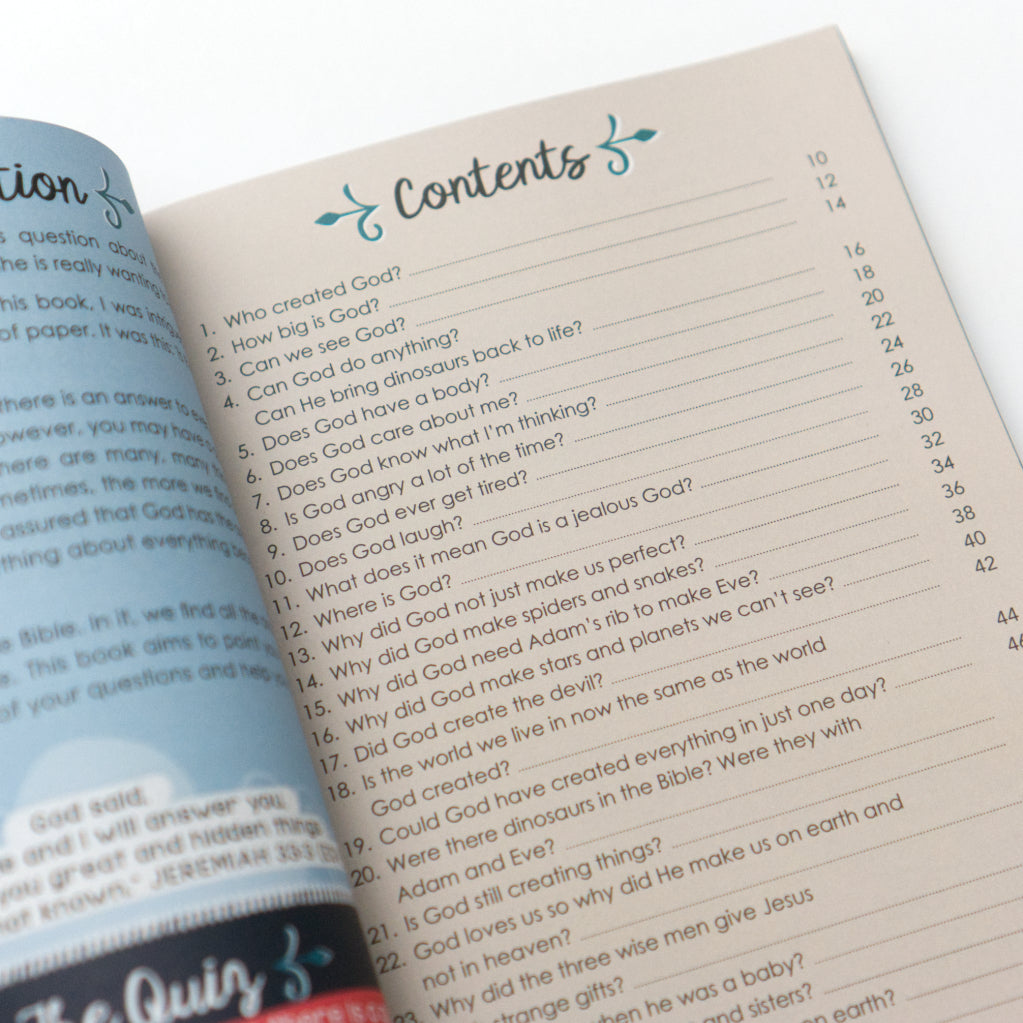 tion
question about
he is really wanting
his book, I was
of paper. It was this:
there is an answer to
owever, you may have
here are many, many
metimes, the more we
assured that God has the
thing about everything
e Bible. In it, we find all the
e. This book aims to point
of your questions and help
God said,
and I will answer you
you great and hidden things
known." JEREMIAH 33:3
The Quiz
Contents
1. Who created God? 10
2. How big is God? 12
3. Can we see God? 14
4. Can God do anything?
Can He bring dinosaurs back to life? 16
5. Does God have a body? 18
6. Does God care about me? 20
7. Does God know what I'm thinking? 22
8. Is God angry a lot of the time? 24
9. Does God ever get tired? 26
10. Does God laugh? 28
11. What does it mean God is a jealous God? 30
12. Where is God? 32
13. Why did God not just make us perfect? 34
14. Why did God make spiders and snakes? 36
15. Why did God need Adam's rib to make Eve? 38
16. Why did God make stars and planets we can't see? 40
17. Did God create the devil? 42
18. Is the world we live in now the same as the world
God created? 44
19. Could God have created everything in just one day? 46
20. Were there dinosaurs in the Bible? Were they with
Adam and Eve?
21. Is God still creating things?
22. God loves us so why did He make us on earth and
not in heaven?
23. Why did the three wise men give Jesus
strange gifts?
when he was a baby?
and sisters?
on earth?